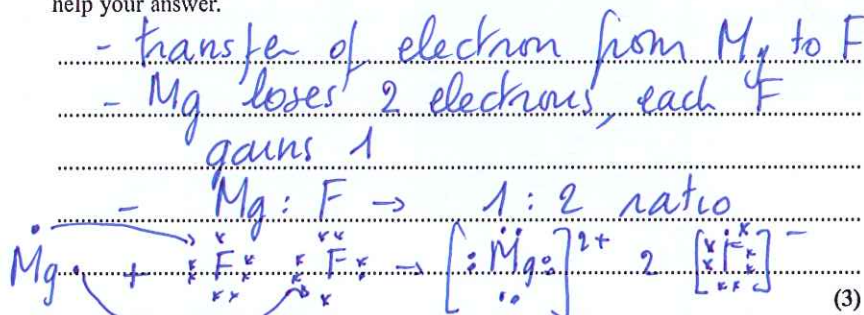 help your answer.
- transfer of electron from Mg to F
- Mg loses 2 electrons, each F
gains 1
- Mg : F → 1 : 2 ratio
Mg + F F → [Mg]²⁺ 2 [F]⁻
(3)